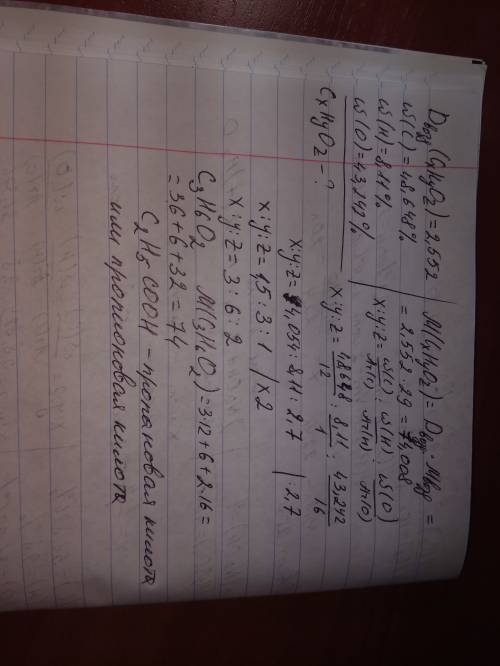 Dвозд(CxHyOz) = 2,552
w(C) = 48,648%
w(H) = 8,11%
w(O) = 43,242%
CxHyOz - ?
M(CxHyOz) = Dвозд · Mвозд =
= 2,552 · 29 = 74,008
x:y:z = w(C)/Ar(C) : w(H)/Ar(H) : w(O)/Ar(O)
x:y:z = 48,648/12 : 8,11/1 : 43,242/16
x:y:z = 4,054 : 8,11 : 2,7 | :2,7
x:y:z = 1,5 : 3 : 1 | x2
x:y:z = 3 : 6 : 2
C3H6O2 M(C3H6O2) = 3·12+6+2·16=
= 36+6+32 = 74
C2H5COOH - пропановая кислота
или пропионовая кислота